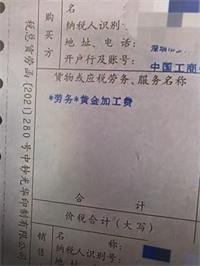 购买方
名 称:
纳税人识别号
地 址、电话
开户行及账号:
中国工商
货物或应税劳务、服务名称
*劳务*黄金加工费
合 计
价税合计（大写）
销售
名 称:
纳税人识别号:
税总货劳函〔2021〕280号中钞光华印制有限公司